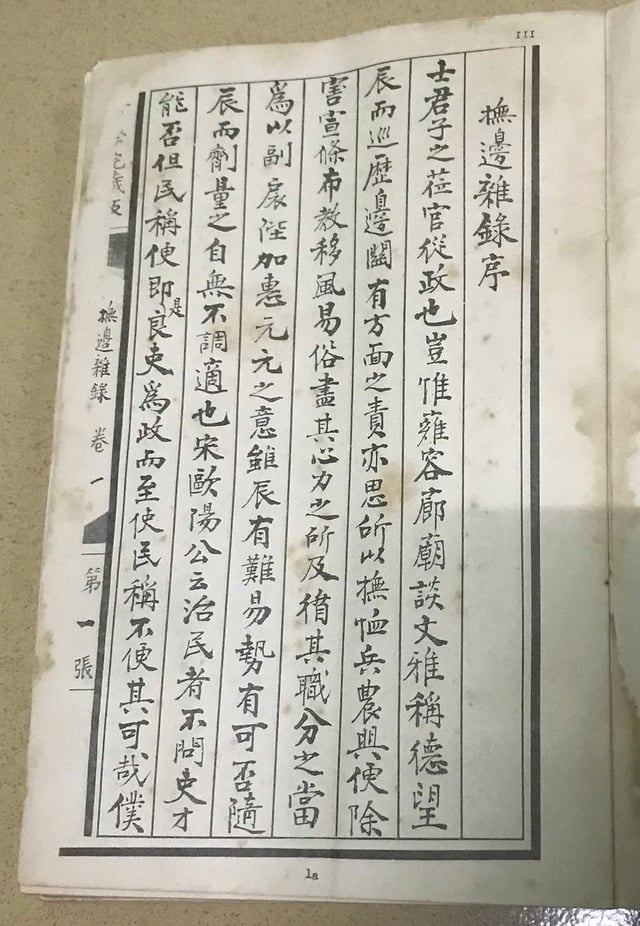 III
撫邊雜錄序
士君子之莅官從政也豈惟雍容廊廟談文雅稱德望
辰而巡歷邊關有方面之責亦思所以撫恤兵農興便除
害宣條布教移風易俗盡其心力之所及脩其職分之當
爲以副宸陛加惠元元之意雖辰有難易勢有可否隨
辰而劑量之自無不調適也宋歐陽公云治民者不問吏才
能否但民稱便即是良吏爲政而至使民稱不便其可哉僕
撫邊雜錄 卷一
第一張
1a